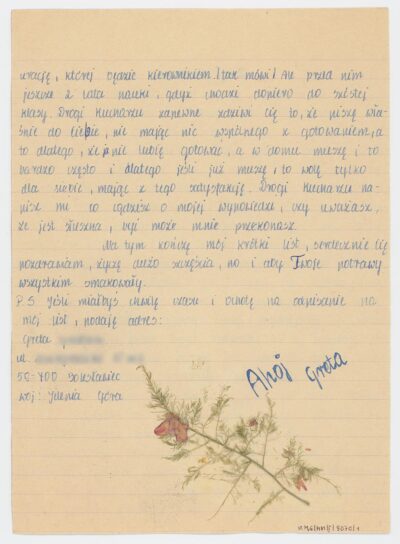 urację, której będzie kierownikiem (tak mówi) Ale przed nim
jeszcze 2 lata nauki, gdyż chodzi dopiero do szóstej
klasy. Drogi Kucharzu zapewne zdziwi cię to, że piszę wła-
śnie do Ciebie, nie mając nic wspólnego z gotowaniem, a
to dlatego, że nie lubię gotować, a w domu muszę i to
bardzo często i dlatego jeśli już muszę, to wolę tylko
dla siebie, mając z tego satysfakcję. Drogi Kucharzu na-
pisz mi co sądzisz o mojej wypowiedzi, czy uważasz,
że jest słuszna, być może mnie przekonasz.
Na tym kończę mój krótki list, serdecznie Cię
pozdrawiam, życzę dużo szczęścia, no i aby Twoje potrawy
wszystkim smakowały.
P.S Jeśli miałbyś chwilę czasu i ochotę na odpisanie na
mój list, podaję adres:
Greta
ul.
59-700 Bolesławiec
woj: Jelenia Góra
Ahój Greta